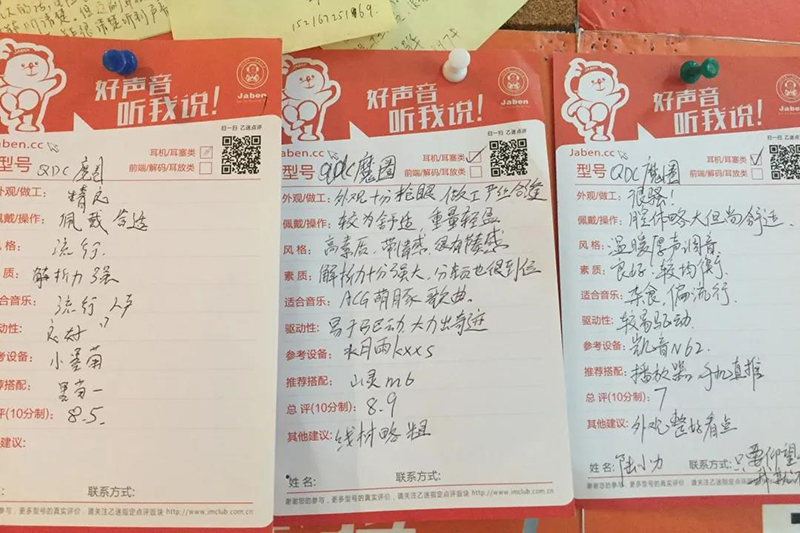 152167251869.
好声音
听我说!
Jaben
扫一扫 乙迷点评
Jaben.cc
型号 QDC 魔圈
耳机/耳塞类
前端/解码/耳放类
外观/做工: 精良
佩戴/操作: 佩戴 合适
风 格: 流行.
素 质: 解析力强
适合音乐: 流行 人声
驱动性: 良好
参考设备: 小墨菊
推荐搭配: 墨菊一
总 评(10分制): 8.5.
其他建议:
姓 名:
联系方式:
谢谢您的参与,更多型号的真实评价,请关注乙迷指定点评版块 http://www.imclub.com.cn
好声音
听我说!
Jaben
扫一扫 乙迷点评
Jaben.cc
型号 QDC魔圈
耳机/耳塞类
前端/解码/耳放类
外观/做工: 外观十分抢眼 做工严丝合缝
佩戴/操作: 较为舒适, 重量轻盈
风 格: 高素质, 带情感 很有棱感
素 质: 解析力十分强大, 分频也很到位
适合音乐: ACG萌月豕 歌曲.
驱动性: 易于马区动 大力出奇迹
参考设备: 水月雨kxxs
推荐搭配: 山灵m6
总 评(10分制): 8.9
其他建议: 线材略粗
姓 名:
联系方式:
谢谢您的参与,更多型号的真实评价,请关注乙迷指定点评版块 http://www.imclub.com.cn
好声音
听我说!
Jaben
扫一扫 乙迷点评
Jaben.cc
型号 QDC魔圈
耳机/耳塞类
前端/解码/耳放类
外观/做工: 很骚!
佩戴/操作: 腔体略大但尚舒适.
风 格: 温暖厚声润音
素 质: 良好.较均衡
适合音乐: 杂食, 偏流行.
驱动性: 较易驱动
参考设备: 凯音N6z.
推荐搭配: 播放器. 手机直推
总 评(10分制): 7
其他建议: 外观整好看点
姓 名: 陆小力
联系方式: 只要仰望
谢谢您的参与,更多型号的真实评价,请关注乙迷指定点评版块 http://www.imclub.com.cn